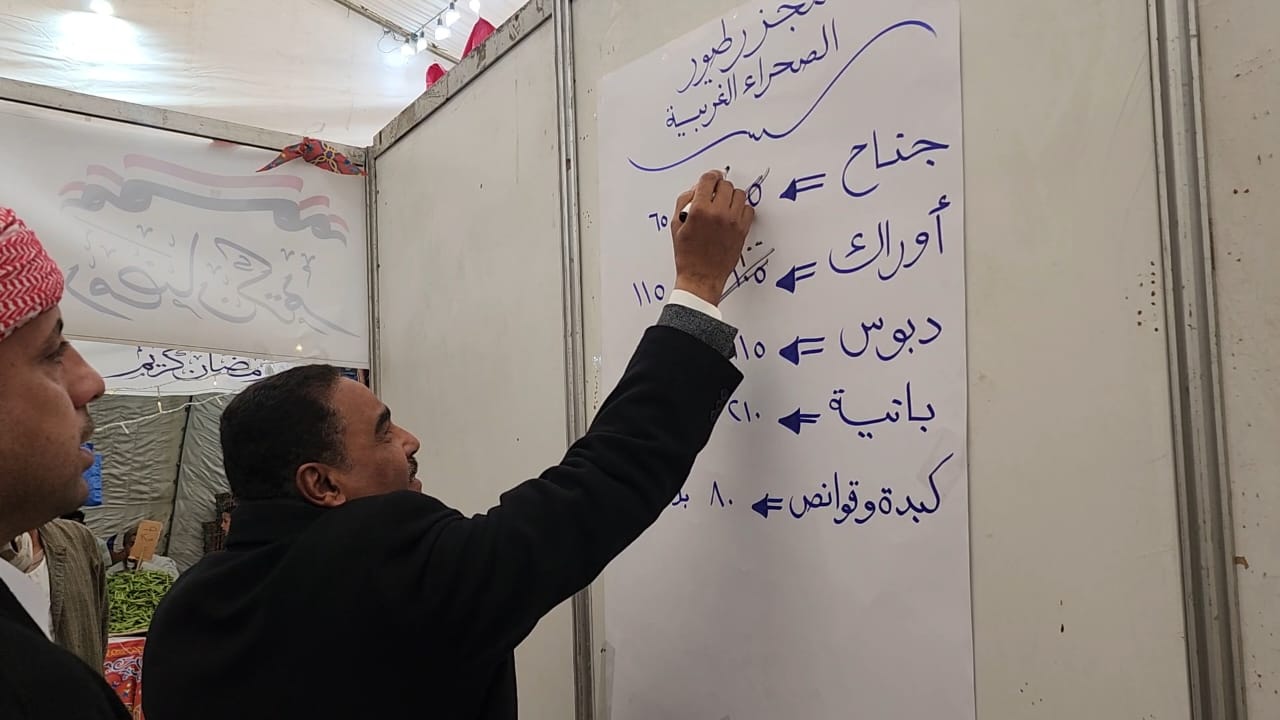 مجزر طيور
الصحراء الغربية
جناح ⇐ ٦٥
أوراك ⇐ ١٠٠ ١١٥
دبوس ⇐ ١١٥
بانية ⇐ ٢١٠
كبدة وقوانص ⇐ ٨٠
رمضان كريم
رمضان كريم